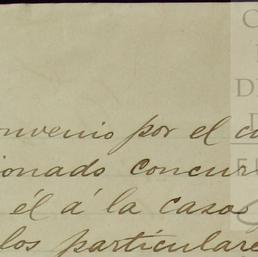 onvenio por el
ionado concur
él á la casa
los particulare